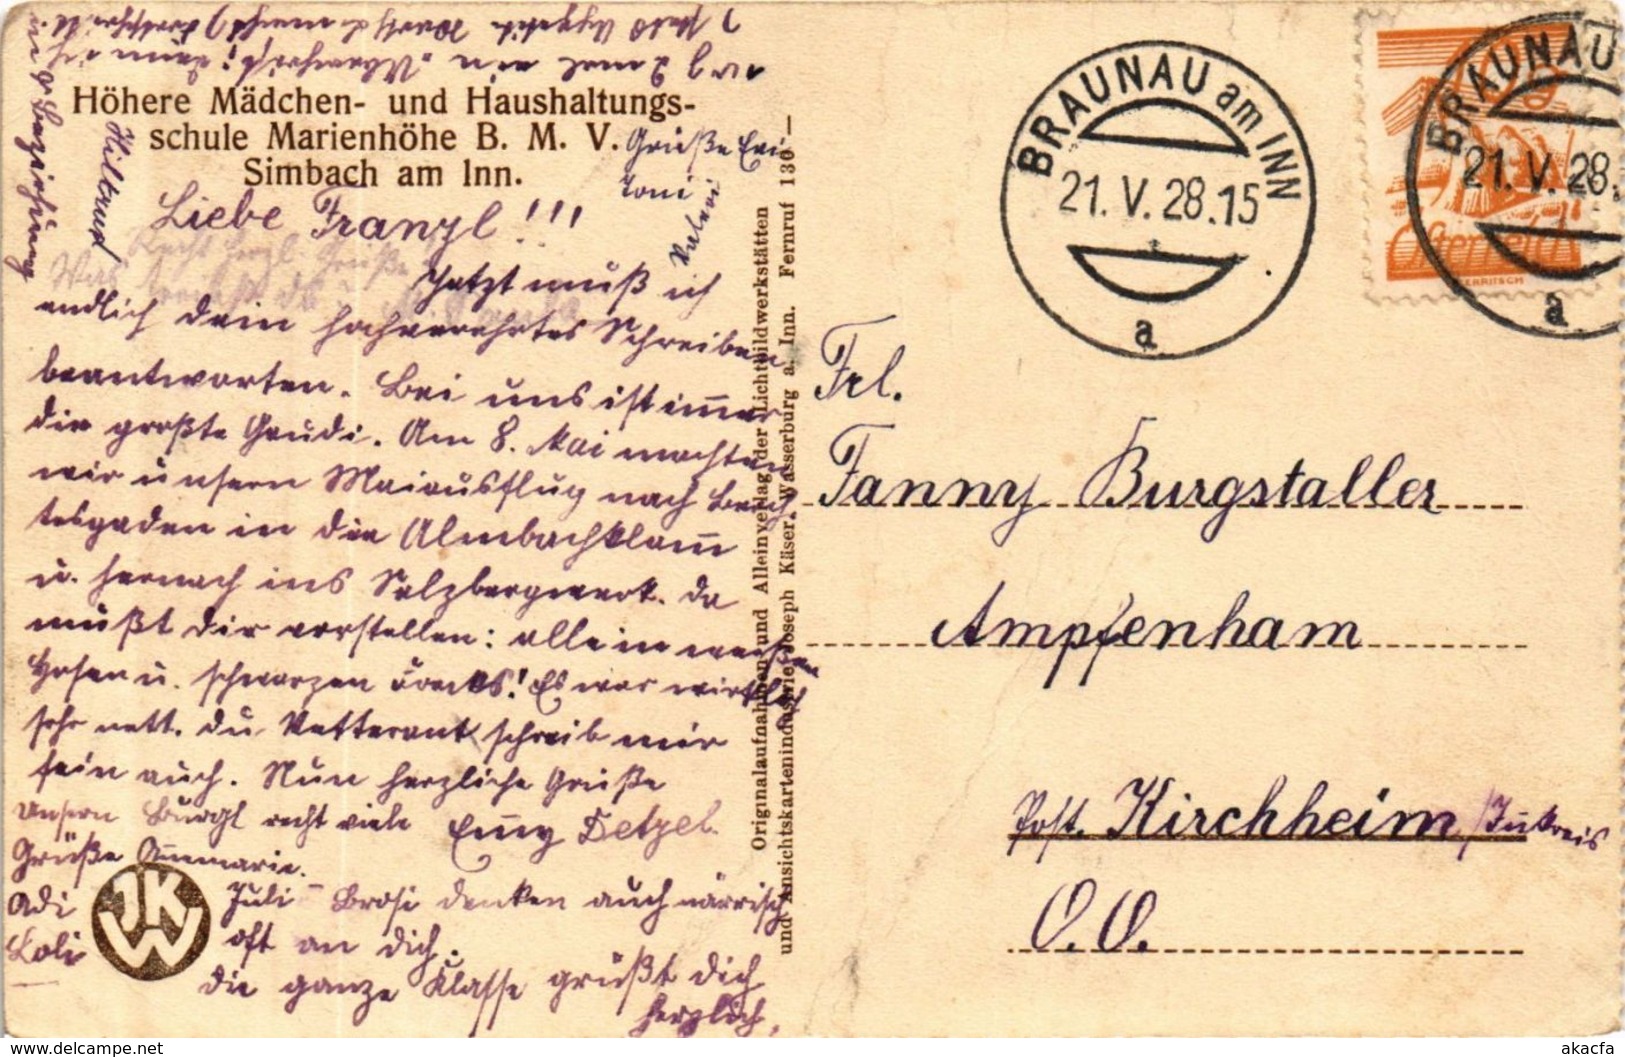 Höhere Mädchen- und Haushaltungs-
schule Marienhöhe B. M. V.
Simbach am Inn.
Grüße Eri
Toni
Hiltraud
Liebe Franzl!!!
Recht herzl. Grüße
Jetzt muß ich
endlich dein hochverehrtes Schreiben
beantworten. Bei uns ist immer
die größte Gaudi. Am 8. Mai machten
wir unsern Maiausflug nach Berch
tesgaden in die Almbachklamm
u. hernach ins Salzbergwerk. Da
mußt dir vorstellen: alle in weißen
Hosen u. schwarzen Fracks! Es war wirklich
sehr nett. Du Vetterant schreib mir
fein auch. Nun herzliche Grüße
Emmy Detzel.
unsern Burgl recht viele
Grüße Annemarie.
Adi
Loli
Juli - Brosi denken auch närrisch
oft an dich.
Die ganze Klasse grüßt dich
herzlich,
JKW
Originalaufnahmen und Alleinverlag der Lichtbildwerkstätten
und Ansichtskartenindustrie Joseph Käser, Wasserburg a. Inn. Fernruf 130
BRAUNAU am INN
21. V. 28. 15
a
BRAUNAU
21. V. 28.
a
Österreich
Frl.
Fanny Burgstaller
Ampfenham
Post. Kirchheim/Innkreis
O.Ö.
akacfa
delcampe.net